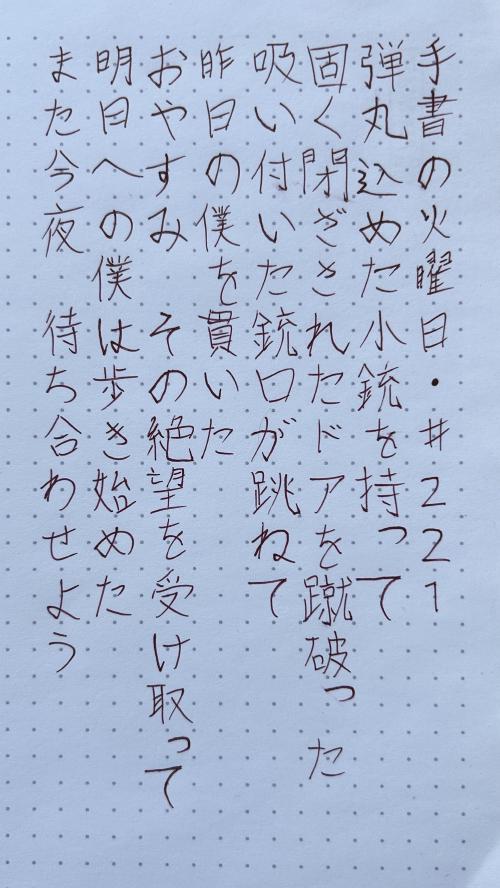 手書の火曜日・#221
弾丸込めた小銃を持って
固く閉ざされたドアを蹴破った
吸い付いた銃口が跳ねて
昨日の僕を貫いた
おやすみ　その絶望を受け取って
明日への僕は歩き始めた
また今夜　待ち合わせよう